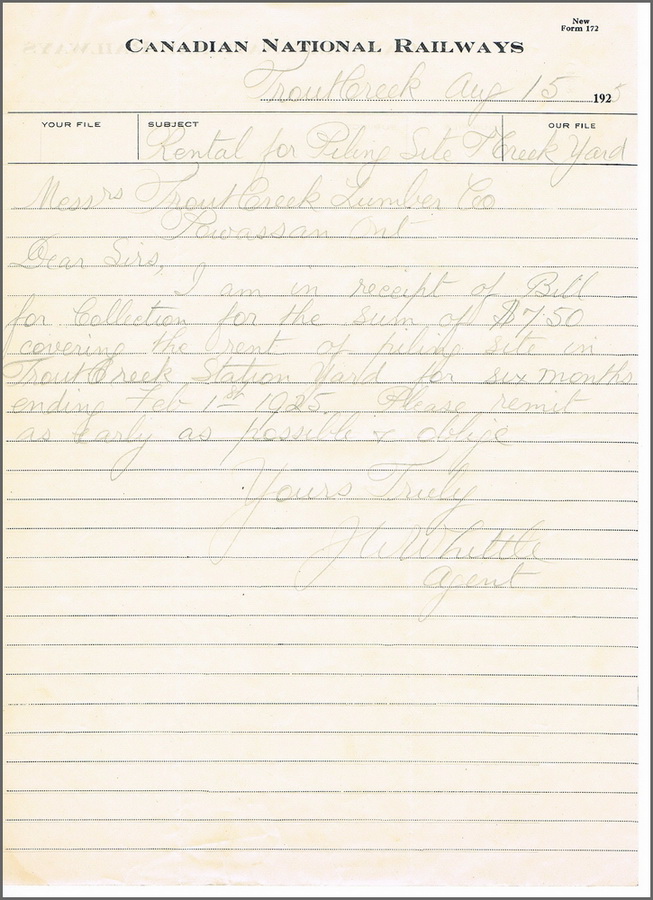 New
Form 172
CANADIAN NATIONAL RAILWAYS
Trout Creek Aug 15 1925
YOUR FILE SUBJECT OUR FILE
Rental for Piling Site T Creek Yard
Messrs Trout Creek Lumber Co
Powassan Ont
Dear Sirs,
I am in receipt of Bill
for Collection for the sum of $7.50
covering the rent of piling site in
Trout Creek Station Yard for six months
ending Feb 1st 1925. Please remit
as early as possible & oblige
Yours Truly
J W Whittle
Agent